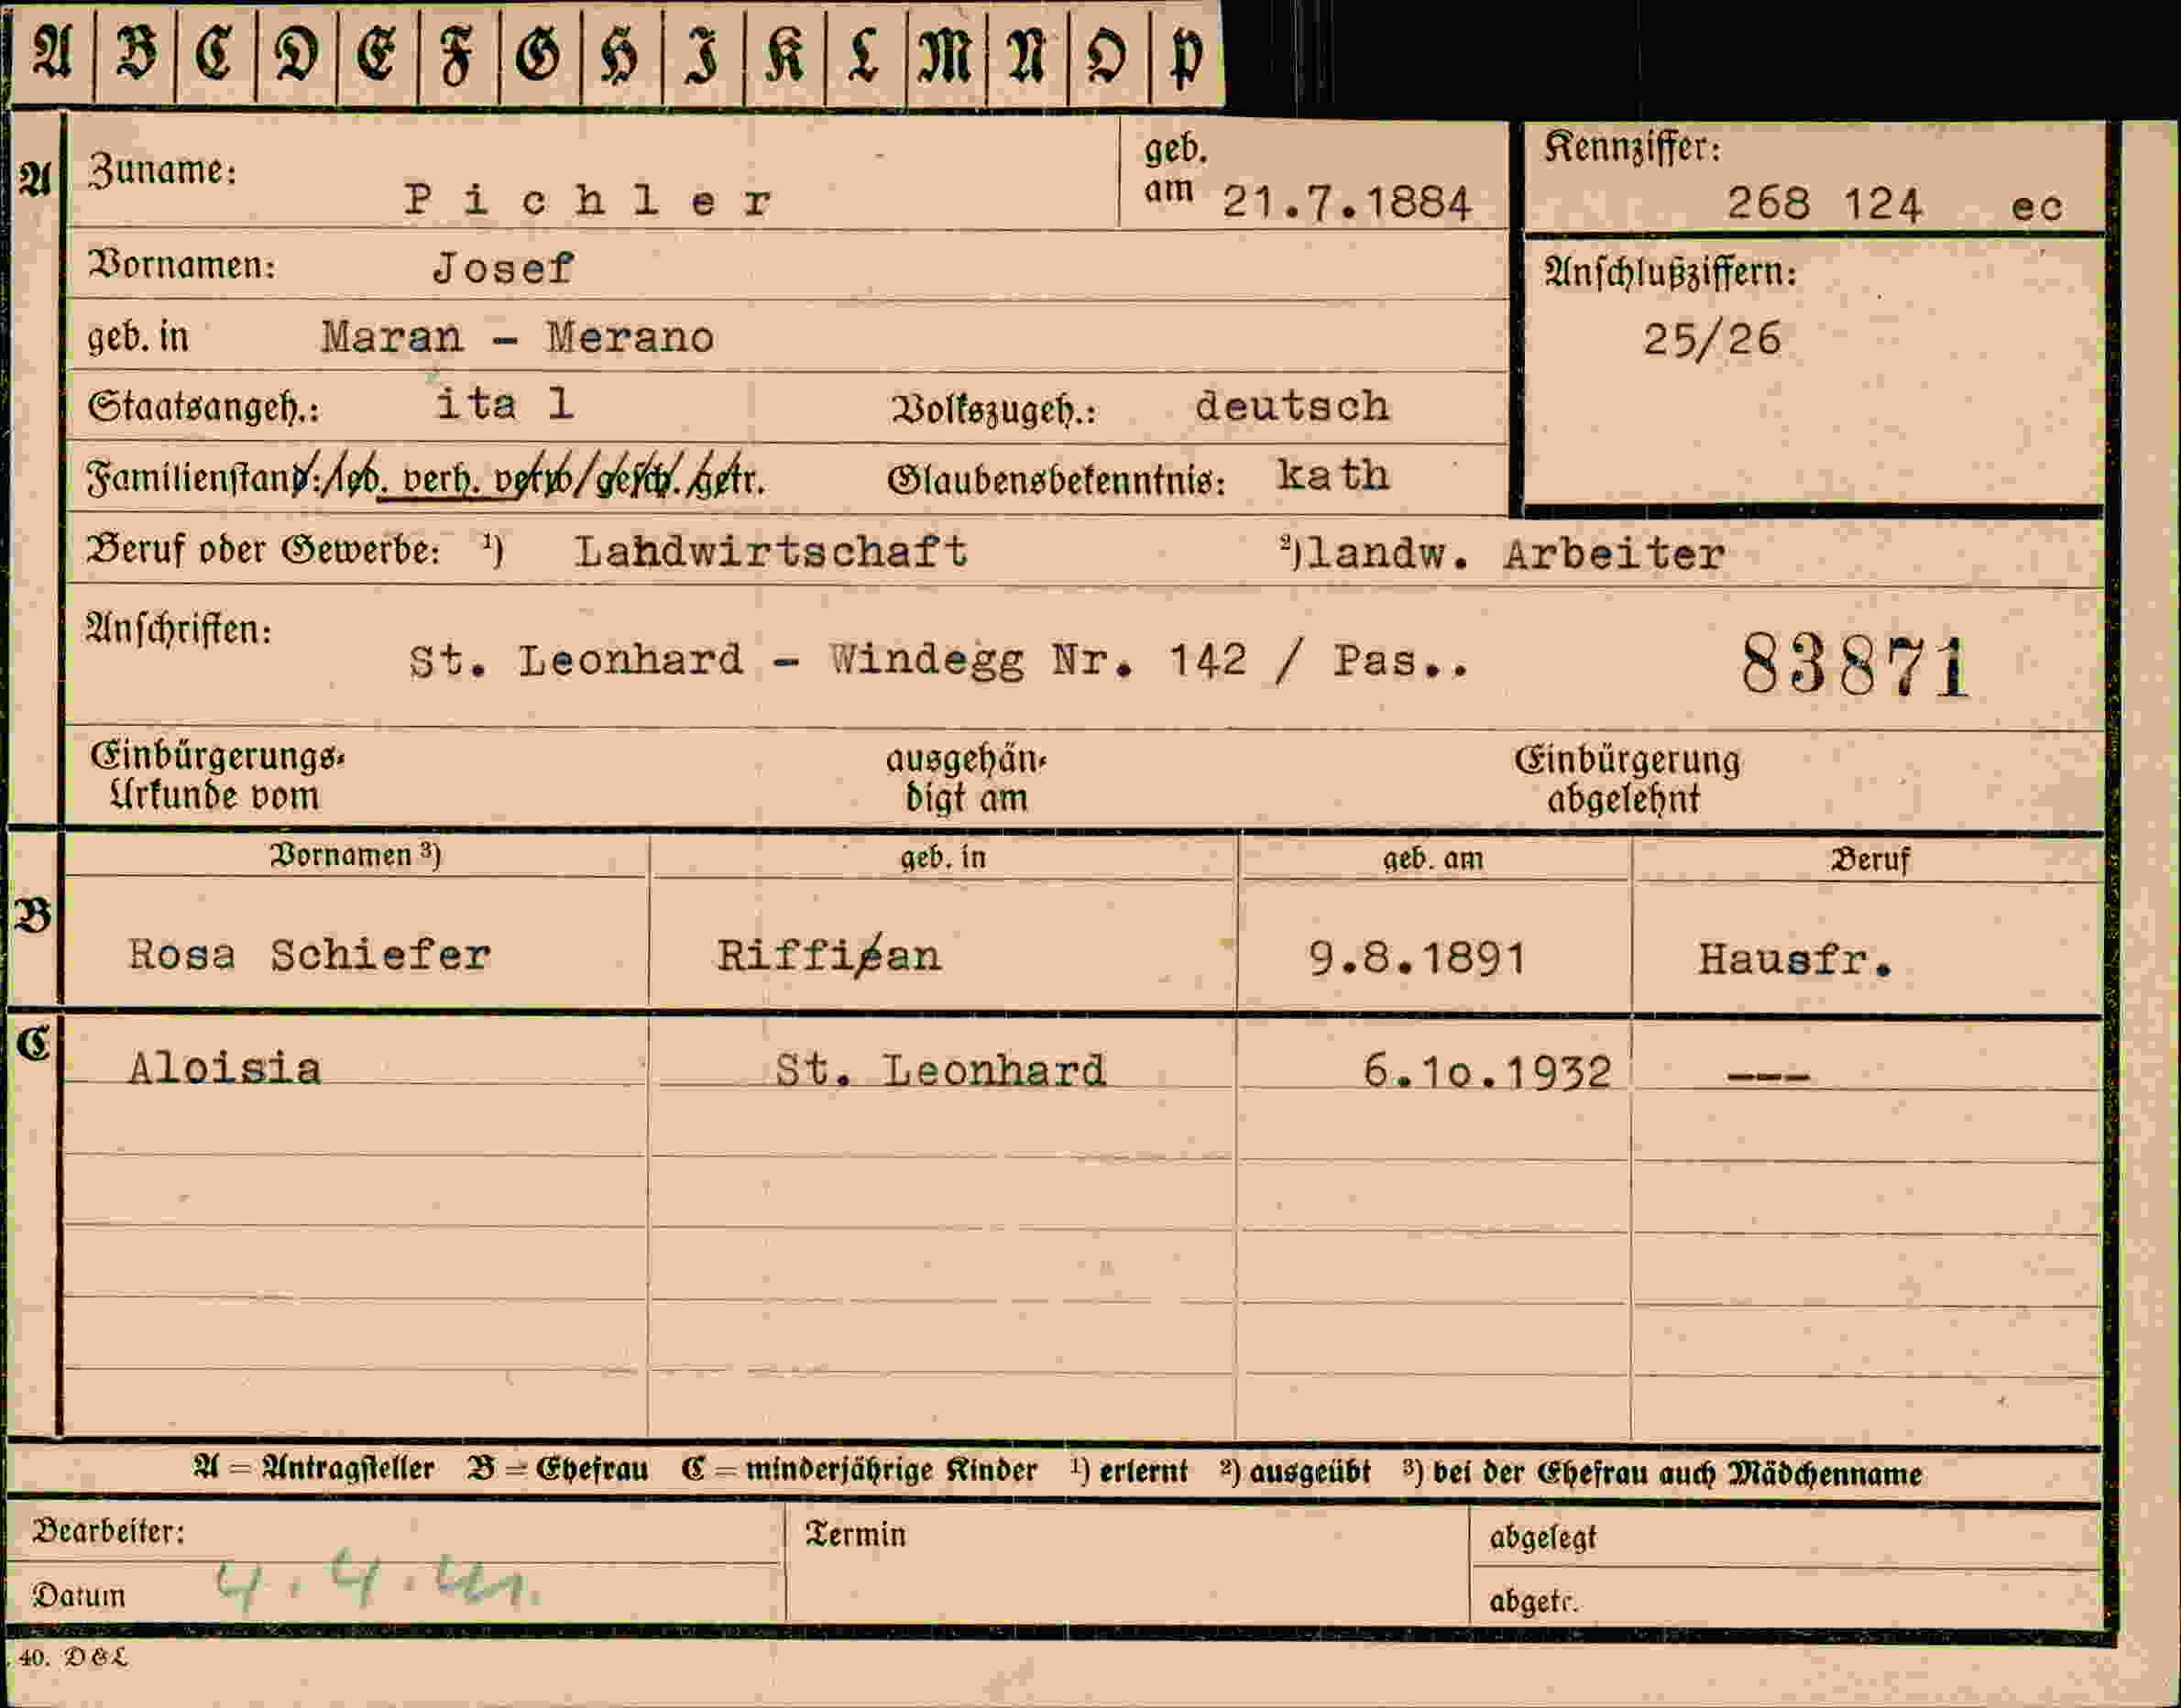 A B C D E F G H I K L M N O P
A Zuname: Pichler geb. am 21.7.1884 Kennziffer: 268 124 ec
Vornamen: Josef Anschlußziffern:
geb. in Maran - Merano 25/26
Staatsangeh.: ita l Volkszugeh.: deutsch
Familienstand: led. verh. verw. gesch. getr. Glaubensbekenntnis: kath
Beruf oder Gewerbe: ¹) Lahdwirtschaft ²) landw. Arbeiter
Anschriften: St. Leonhard - Windegg Nr. 142 / Pas.. 83871
Einbürgerungs- ausgehän- Einbürgerung
Urkunde vom digt am abgelehnt
Vornamen ³) geb. in geb. am Beruf
B Rosa Schiefer Riffian 9.8.1891 Hausfr.
C Aloisia St. Leonhard 6.10.1932 ---
A = Antragsteller B = Ehefrau C = minderjährige Kinder ¹) erlernt ²) ausgeübt ³) bei der Ehefrau auch Mädchenname
Bearbeiter: Termin abgelegt
Datum 4.4.41. abgetr.
40. D&L